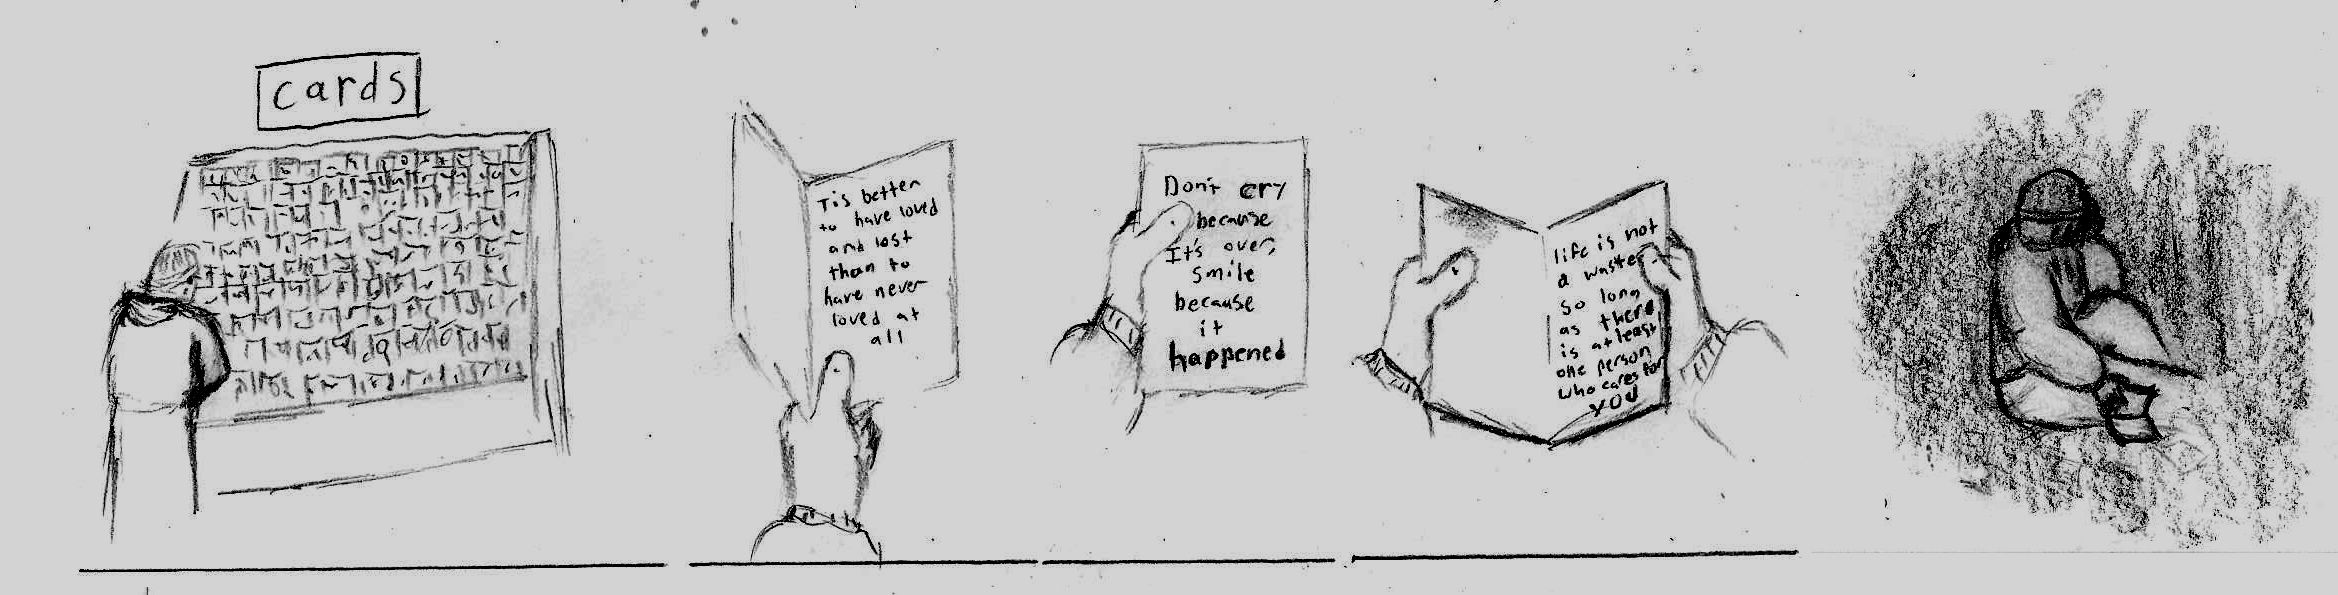 cards
Tis better
to have loved
and lost
than to
have never
loved at
all
Don't cry
because
It's over,
smile
because
it
happened
life is not
a waste
so long
as there
is at least
one person
who cares for
YOU